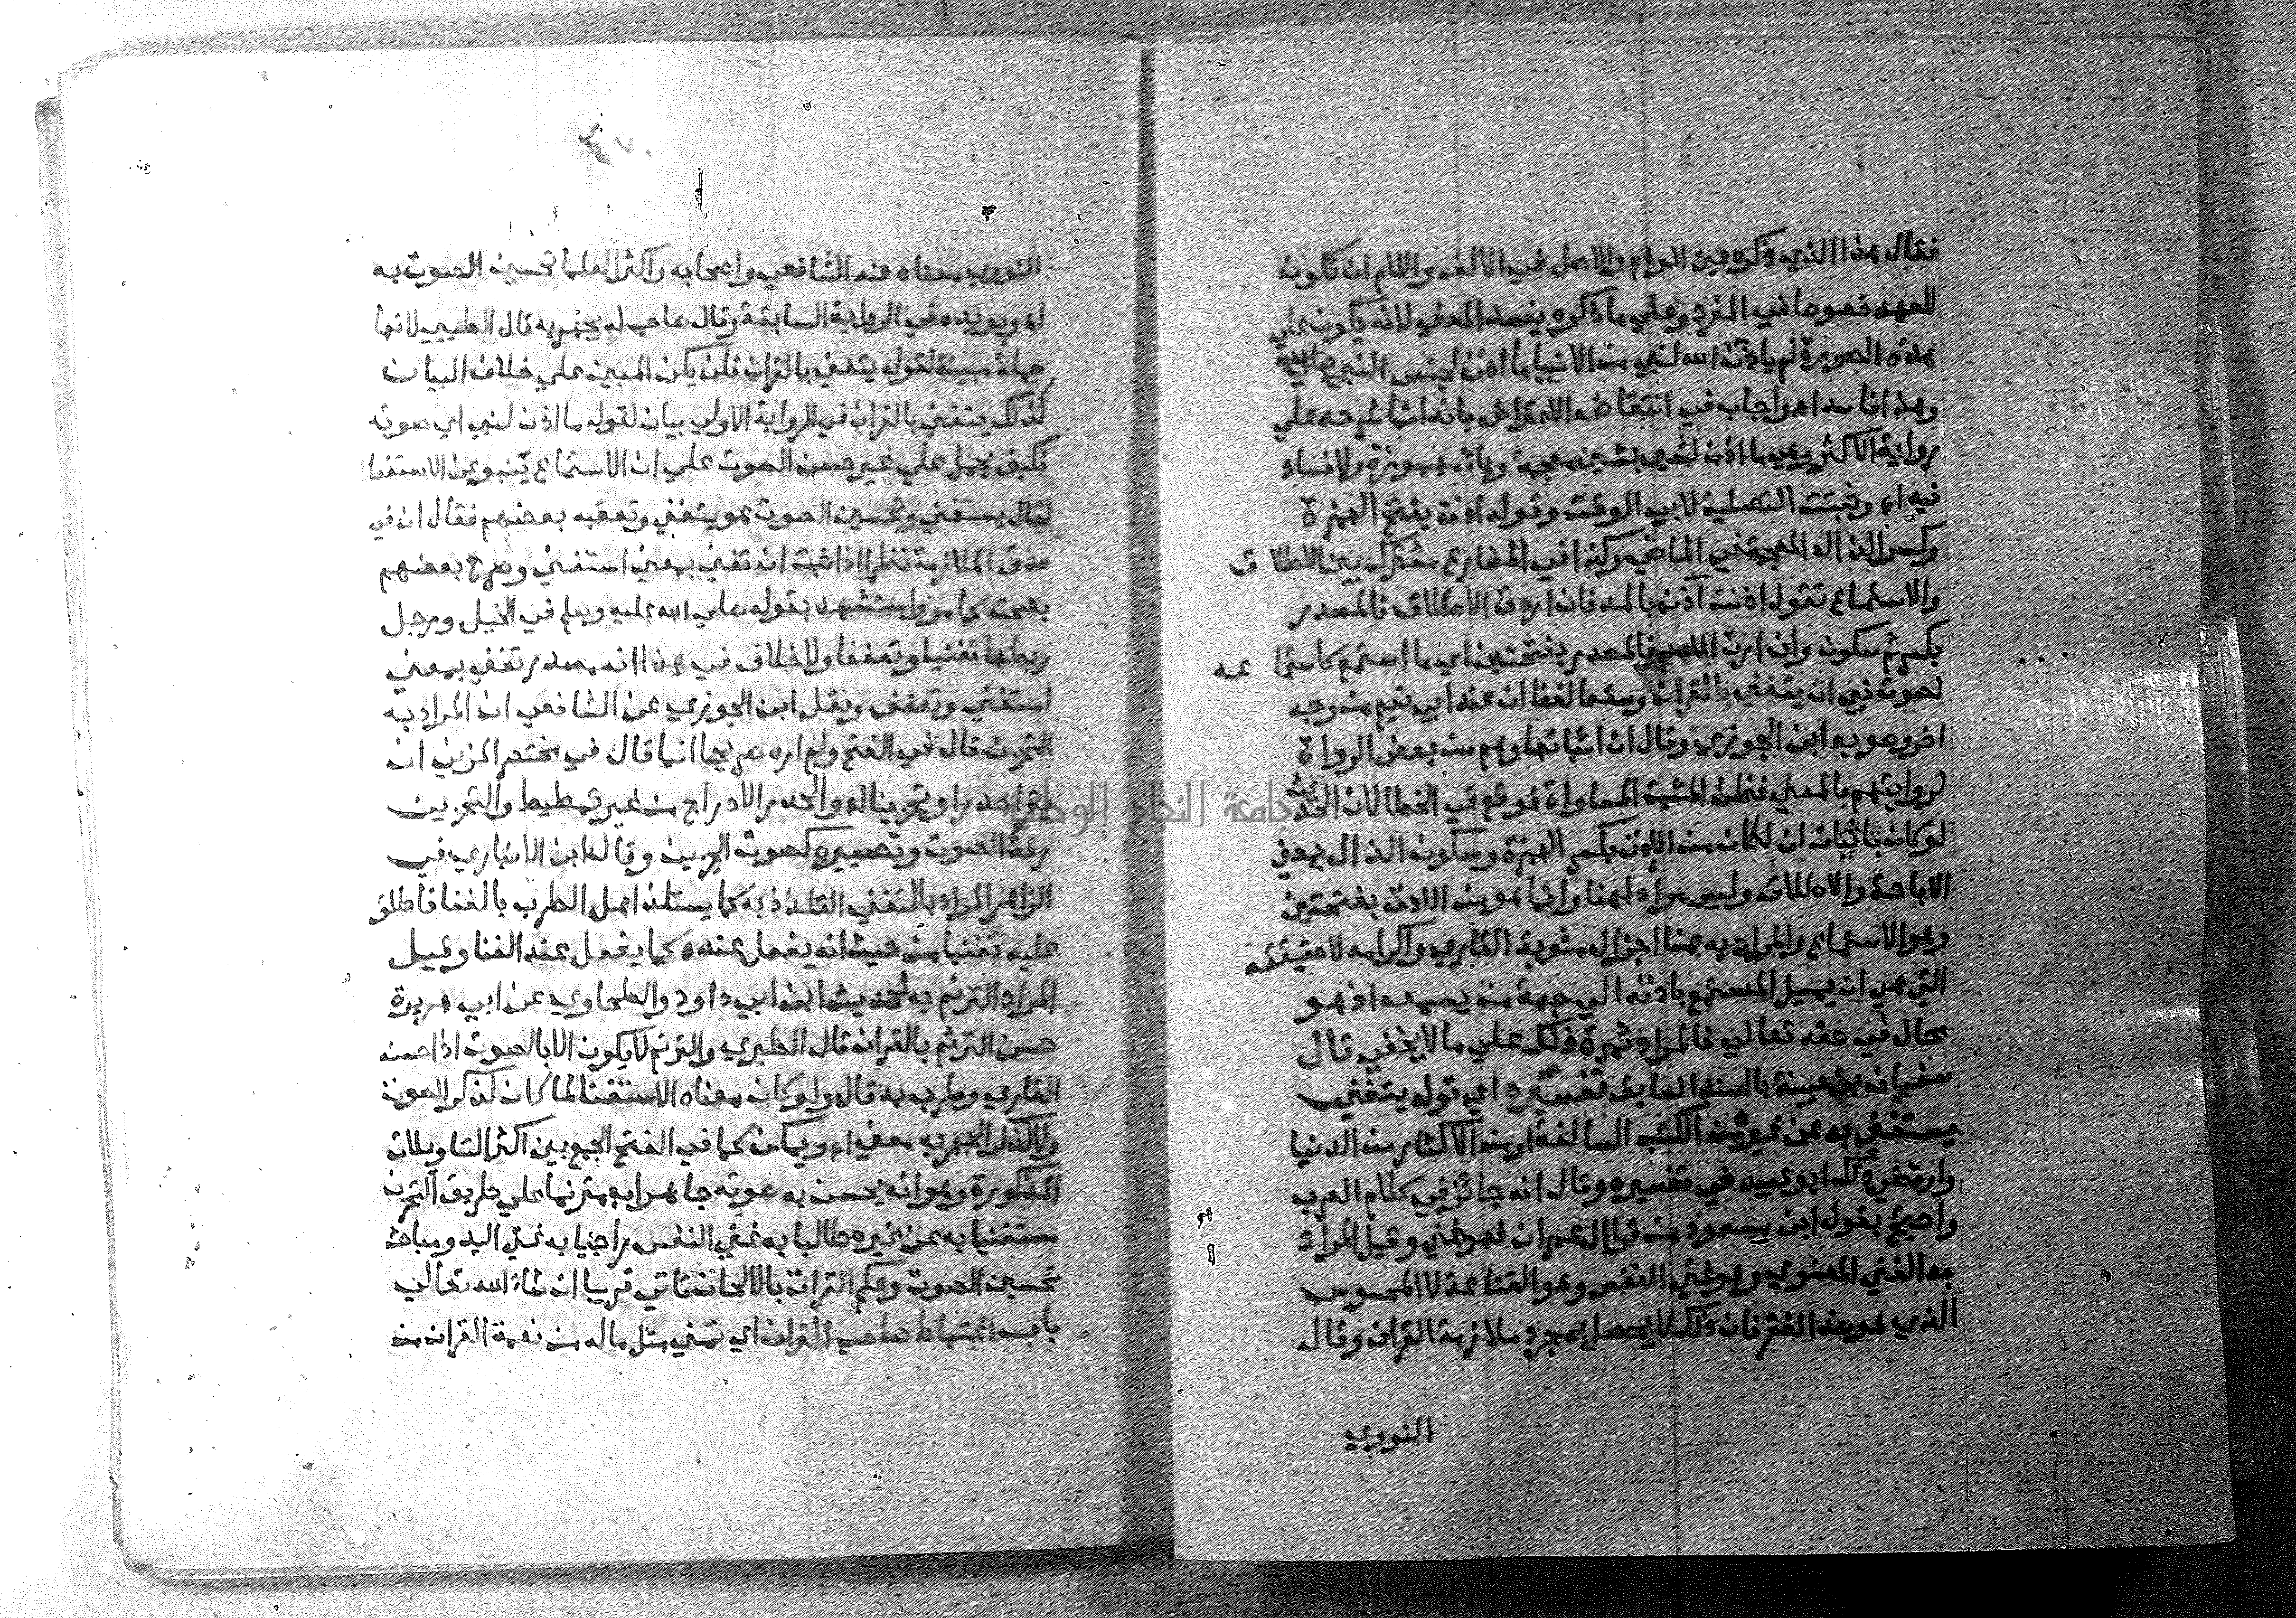 فقال هذا الذي ذكره عين الوهم والاصل في الالف واللام ان تكون
للعهد خصوصا في المفرد وعلى ما ذكره يفسد المعني لانه يكون علي
هذه الصورة لم ياذن الله لنبي من الانبيا ما اذن لجنس النبي
وهذا فاسد اه واجاب في انتقاض الاعتراض بانه انما شرحه علي
رواية الاكثر وهي ما اذن لشي بشين معجمة ويا مهموزة ولا فساد
فيه اه وثبتت التصلية لابي الوقت وقوله اذن بفتح الهمزة
وكسر الذال المعجمة في الماضي وكذا في المضارع مشترك بين الاطلاق
والاستماع تقول اذنت آذن بالمد فان اردت الاطلاق فالمصدر
بكسر ثم سكون وان اردت فالمصدر بفتحتين اي ما استمع كاستماعه
لصوت نبي ان يتغني بالقران وسقط لفظ ان عند ابي نعيم من وجه
اخر وصوبه ابن الجوزي وقال ان اثباتها وهم من بعض الرواة
لروايتهم بالمعني فظن المثبت المساواة فوقع في الخطا لان الحديث
لو كان باثبات ان لكان من الاذن بكسر الهمزة وسكون الذال بمعني
الاباحة والاطلاق وليس مرادا هنا وانما هو من الاذن بفتحتين
وهو الاستماع والمراد به هنا اجزال مثوبة القاري واكرامه لا حقيقته
التي هي ان يميل المستمع باذنه الي جهة من يسمعه اذ هو
محال في حقه تعالي فالمراد ثمرة ذلك علي ما لا يخفي قال
سفيان بن عيينة بالسند السابق تفسيره اي قوله يتغني
يستغني به عن غيره من الكتب السالفة او من الاكثار من الدنيا
وارتضي ذلك ابو عبيد في تفسيره وقال انه جائز في كلام العرب
واحتج بقول ابن مسعود من قرا ال عمران فهو غني وقيل المراد
به الغني المعنوي وهو غني النفس وهو القناعة لا المحسوس
الذي هو ضد الفقر فان ذلك لا يحصل بمجرد ملازمة القران وقال
النووي
النووي معناه عند الشافعي واصحابه واكثر العلما تحسين الصوت به
اه ويويده في الرواية السابقة وقال صاحب له يجهر به قال الطيبي لانها
جملة مبينة لقوله يتغني بالقران فلن يكن المبين علي خلاف البيان
كذلك يتغني بالقران في الرواية الاولي بيان لقوله ما اذن لنبي اي صوته
فكيف يحمل علي غير حسن الصوت علي ان الاستماع ينبو عن الاستغنا
لقال يستغني وتحسين الصوت هو يتغني وتعقبه بعضهم فقال ان في
صدق الملازمة نظرا اذا ثبت ان تغني بمعني استغني وصرح بعضهم
بصحته كما مر واستشهد بقوله صلي الله عليه وسلم في الخيل ورجل
ربطها تغنيا وتعففا ولا خلاف في هذا انه مصدر تغني بمعني
استغني وتعفف ونقل ابن الجوزي عن الشافعي ان المراد به
التحزن قال في الفتح ولم اره صريحا انما قال في مختصر المزني ان
يقرا حدرا وتحزينا اه والحدر الادراج من غير تمطيط والتحزين
رقة الصوت وتصييره كصوت الحزين وقال ابن الانباري في
الزاهر المراد بالتغني التلذذ به كما يستلذ اهل الطرب بالغنا فاطلق
عليه تغنيا من حيث انه يفعل عنده كما يفعل عند الغنا وقيل
المراد الترنم به لحديث ابن ابي داود والطحاوي عن ابي هريرة
حسن الترنم بالقران قال الطبري والترنم لا يكون الا بالصوت اذا حسنه
القاري وطرب به قال ولو كان معناه الاستغنا لما كان لذكر الصوت
ولا لذكر الجهر به معني اه ويمكن كما في الفتح الجمع بين اكثر التاويلات
المذكورة وهو انه يحسن به صوته جاهرا به مترنما علي طريق التحزن
مستغنيا به عن غيره طالبا به غني النفس راجيا به غني اليد ومباحث
تحسين الصوت وحكم القراة بالالحان تاتي قريبا ان شاء الله تعالي
باب اغتباط صاحب القران اي تمني مثل ماله من نعمة القران من
جامعة النجاح الوطنية